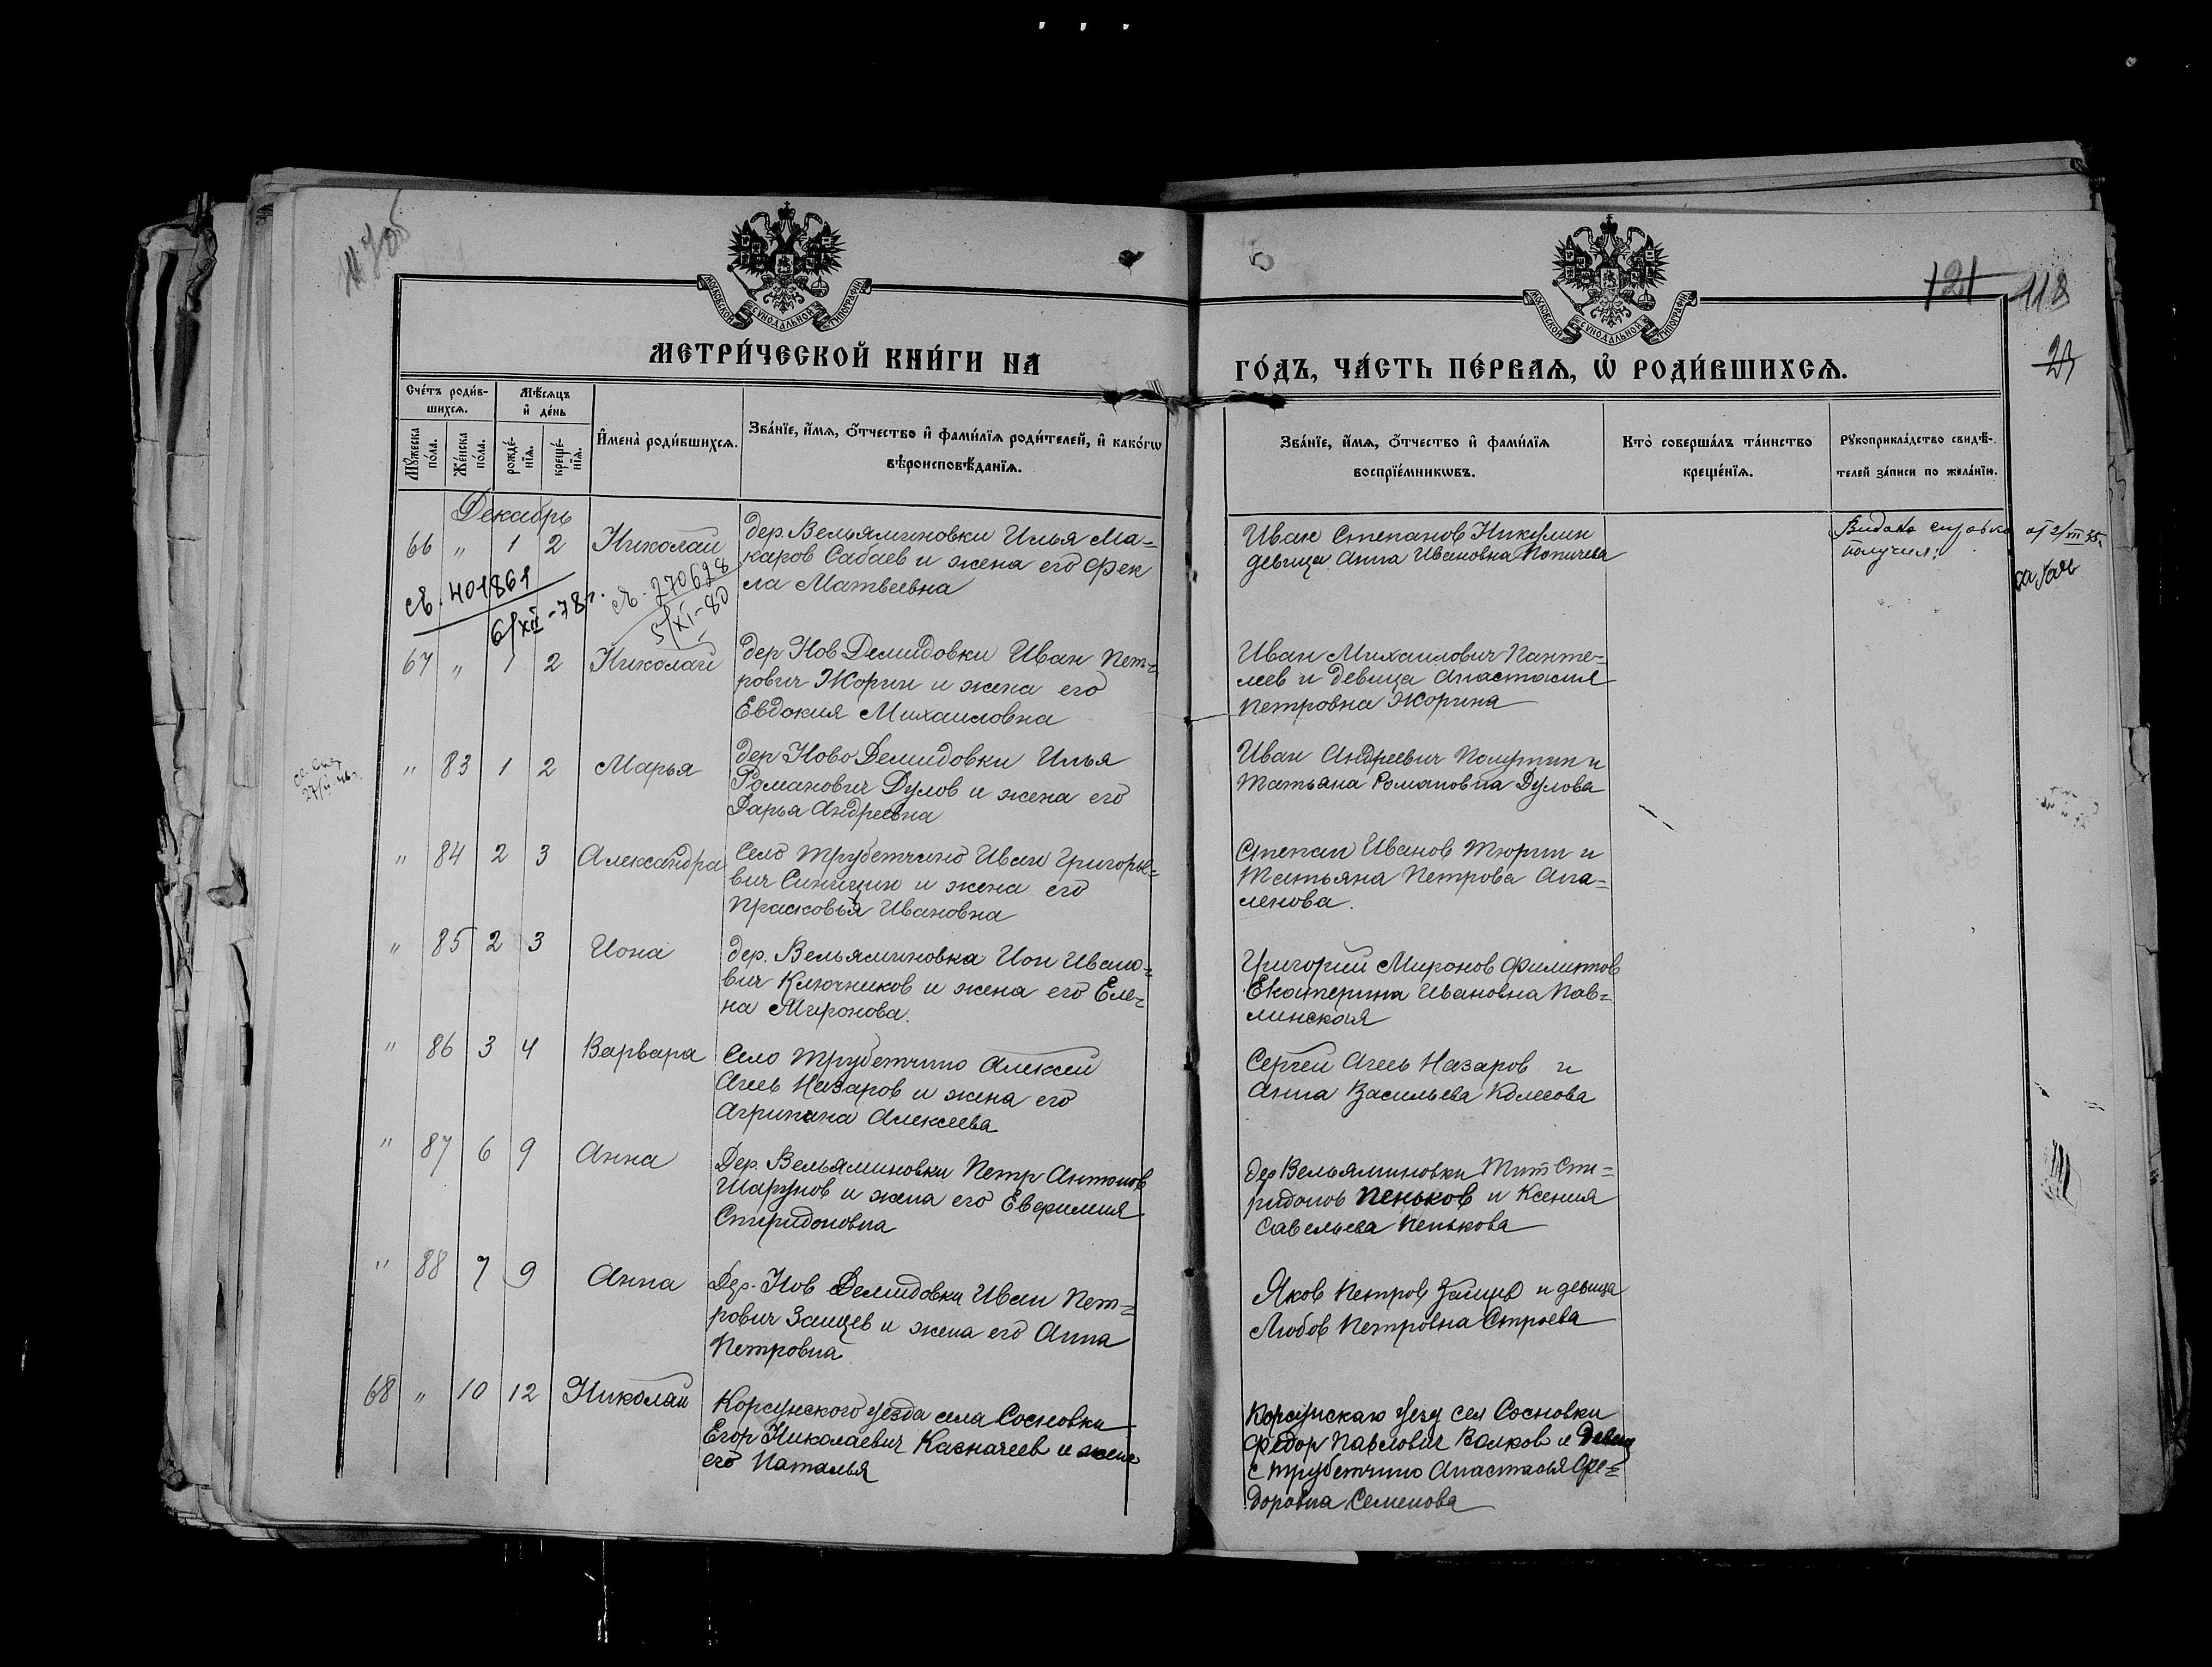 118
МОСКОВСКОЙ СѴНОДАЛЬНОЙ ТИПОГРАФІИ
МОСКОВСКОЙ СѴНОДАЛЬНОЙ ТИПОГРАФІИ
МЕТРИ́ЧЕСКОЙ КНИ́ГИ НА
ГО́ДЪ, ЧА́СТЬ ПЕ́РВАѦ, Ѡ҆ РОДИ́ВШИХСѦ.
Сче́тъ роди́в-
шихсѧ.
Мѣ́сѧцъ
и҆ де́нь
Мꙋ́жеска
по́ла.
Же́нска
по́ла.
рожде́-
нїѧ.
креще́-
нїѧ.
И҆мена̀ роди́вшихсѧ.
Зва́нїе, и҆́мѧ, ѻ҆́тчество и҆ фами́лїѧ роди́телей, и҆ како́гѡ
вѣроисповѣ́данїѧ.
Зва́нїе, и҆́мѧ, ѻ҆́тчество и҆ фами́лїѧ
воспрїе́мникѡвъ.
Кто̀ соверша́лъ та́инство
креще́нїѧ.
Рꙋкоприкла́дство свидѣ́-
телей за́писи по жела́нїю.
Декабрь
66 " 1 2 Николай
дер. Вельяминовки Илья Ма-
каров Сабаев и жена его Фек
ла Матвеевна
Иван Степанов Никулин
девица Анна Ивановна
справка
получил
св. 401861
6/XII-78г.
св. 270628
5/XI-80
67 " 1 2 Николай
дер Нов Демидовки Иван Пет-
рович Жорин и жена его
Евдокия Михаиловна
Иван Михаилович Панте-
леев и девица Анастасия
Петровна Жорина
" 83 1 2 Марья
дер Ново Демидовки Илья
Романович Дулов и жена его
Дарья Андреевна
Иван Андреевич и
Татьяна Романовна Дулова
" 84 2 3 Александра
Село Трубетчино Иван Григорье-
вич Синицин и жена его
Прасковья Ивановна
Степан Иванов Тюрин и
Татьяна Петрова
" 85 2 3 Иона
дер. Вельяминовка Ион Ивано-
вич Ключников и жена его Еле-
на Миронова.
Григорий Миронов Филиппов
Екатерина Ивановна Пав-
линская
" 86 3 4 Варвара
Село Трубетчино Алексей
Агеев Назаров и жена его
Агрипина Алексеева
Сергей Агеев Назаров и
Анна Васильева Колесова
" 87 6 9 Анна
Дер. Вельяминовки Петр Антонов
Шарунов и жена его Евфимия
Спиридоновна
дер Вельяминовки Тит Спи-
ридонов Пеньков и Ксения
Савельева Пенькова
" 88 7 9 Анна
Дер. Нов Демидовки Иван Пет-
рович Заицев и жена его Анна
Петровна
Яков Петров Заицев и девица
Любов Петровна Строева
68 " 10 12 Николай
Корсунского уезда села Сосновки
Егор Николаевич Казначеев и жена
его Наталья
Корсунскаго уезд сел Сосновки
Федор Павлович Волков и девиц
с Трубетчино Анастасья Фе-
доровна Семенова